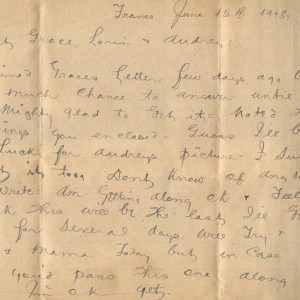 France June 15th 1918.
Grace, Lorin & Audrey:
Graces letter few days ago
much chance to answer until
Mighty glad to get it - Noted
you enclosed - Guess I'll be
Luck for audreys picture - I
it too Dont know of any
write - Am getting along ok &
this will be the last I'll
for several days. Will Try
& Mama Today but in Case
you'd pass this one along
I'm ok